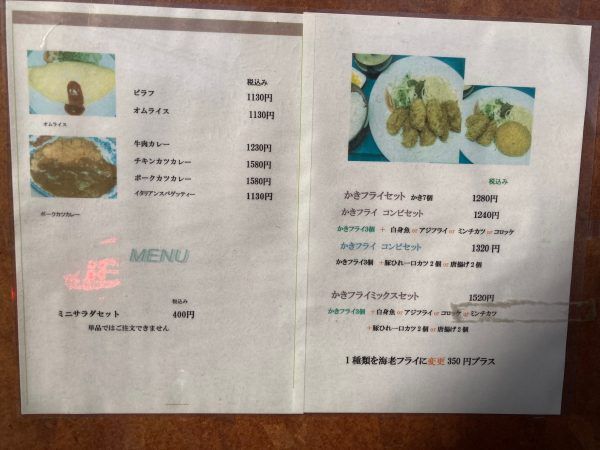 税込み
ピラフ 1130円
オムライス 1130円
オムライス
牛肉カレー 1230円
チキンカツカレー 1580円
ポークカツカレー 1580円
イタリアンスパゲッティー 1130円
ポークカツカレー
MENU
税込み
ミニサラダセット 400円
単品ではご注文できません
税込み
かきフライセット かき7個 1280円
かきフライ コンビセット 1240円
かきフライ3個 + 白身魚 or アジフライ or ミンチカツ or コロッケ
かきフライ コンビセット 1320円
かきフライ3個 +豚ひれ一口カツ2個 or 唐揚げ2個
かきフライミックスセット 1520円
かきフライ3個 + 白身魚 or アジフライ or コロッケ or ミンチカツ
+豚ひれ一口カツ2個 or 唐揚げ2個
1種類を海老フライに変更 350円プラス